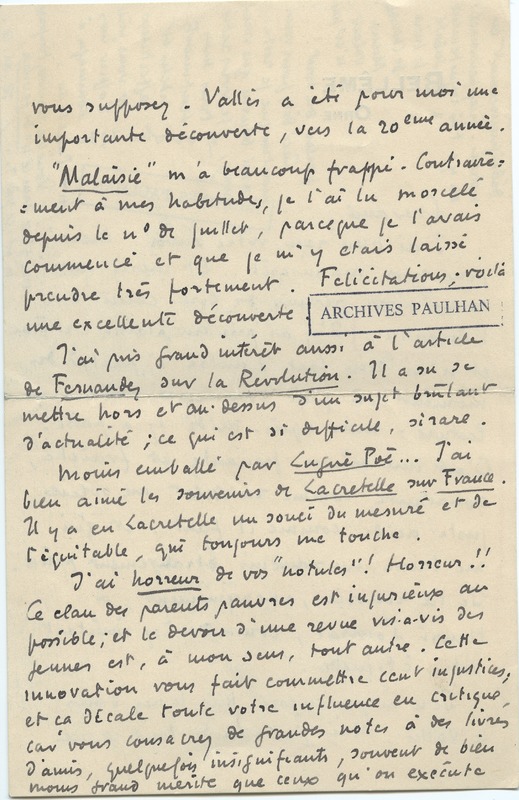 vous supposez. Vallès a été pour moi une
importante découverte, vers la 20ème année.
"Malaisie" m'a beaucoup frappé. Contraire=
=ment à mes habitudes, je l'ai lu morcelé
depuis le n° de juillet, parceque je l'avais
commencé et que je m'y étais laissé
prendre très fortement. Félicitations; voilà
une excellente découverte.
ARCHIVES PAULHAN
J'ai pris grand intérêt aussi à l'article
de Fernandez sur la Révolution. Il a su se
mettre hors et au-dessus d'un sujet brûlant
d'actualité; ce qui est si difficile, si rare.
Moins emballé par Lugné Poë... J'ai
bien aimé les souvenirs de Lacretelle sur France.
Il y a en Lacretelle un souci du mesuré et de
l'équitable, qui toujours me touche.
J'ai horreur de vos "notules"! Horreur!!
Ce clan des parents pauvres est injurieux au
possible; et le devoir d'une revue vis-à-vis des
jeunes est, à mon sens, tout autre. Cette
innovation vous fait commettre cent injustices,
et ça décale toute votre influence en critique,
car vous consacrez de grandes notes à des livres
d'amis, quelquefois insignifiants, souvent de bien
moins grand mérite que ceux qu'on exécute